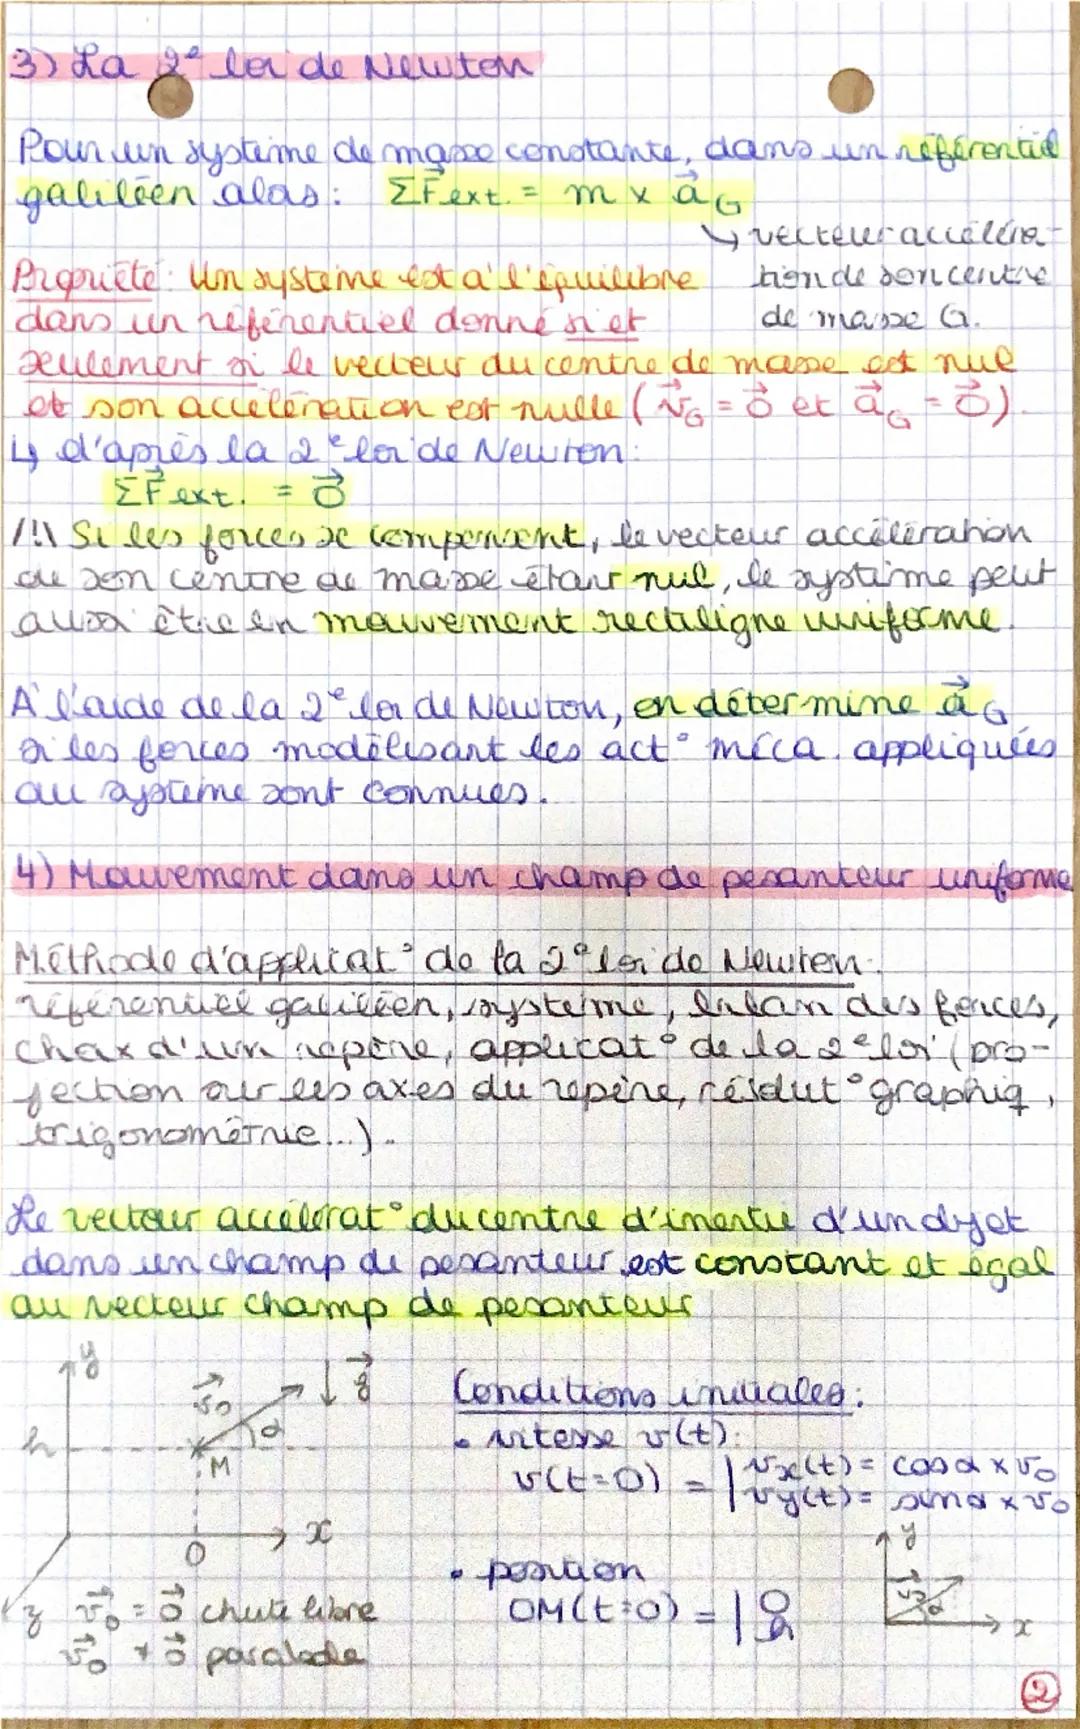 3) La 2e loi de Newton
Pour un système de masse constante, dans un référentiel
galiléen alors : ΣF⃗ext. = m x a⃗G
↳ vecteur accéléra-
tion de son centre
de masse G.
Propriété : Un système est à l'équilibre
dans un référentiel donné si et
seulement si le vecteur du centre de masse est nul
et son accélération est nulle (v⃗G = 0⃗ et a⃗G = 0⃗).
↳ d'après la 2e loi de Newton :
ΣF⃗ext. = 0⃗
/!\ Si les forces se compensent, le vecteur accélération
de son centre de masse étant nul, le système peut
aussi être en mouvement rectiligne uniforme.
A l'aide de la 2e loi de Newton, on détermine a⃗G
si les forces modélisant les act° méca. appliquées
au système sont connues.
4) Mouvement dans un champ de pesanteur uniforme
Méthode d'applicat° de la 2e loi de Newton :
référentiel galiléen, système, bilan des forces,
choix d'un repère, applicat° de la 2e loi (pro-
jection sur les axes du repère, résolut° graphiq,
trigonométrie...).
Le vecteur accélérat° du centre d'inertie d'un objet
dans un champ de pesanteur est constant et égal
au vecteur champ de pesanteur
y
v⃗0
g⃗
α
h
M
O
x
z
v⃗0 = 0⃗ chute libre
v⃗0 ≠ 0⃗ parabole
Conditions initiales :
• vitesse v(t) :
v(t=0) = | vx(t) = cosα x v0
vy(t) = sinα x v0
• position
OM(t=0) = | 0
h
y
v⃗0
α
x
2